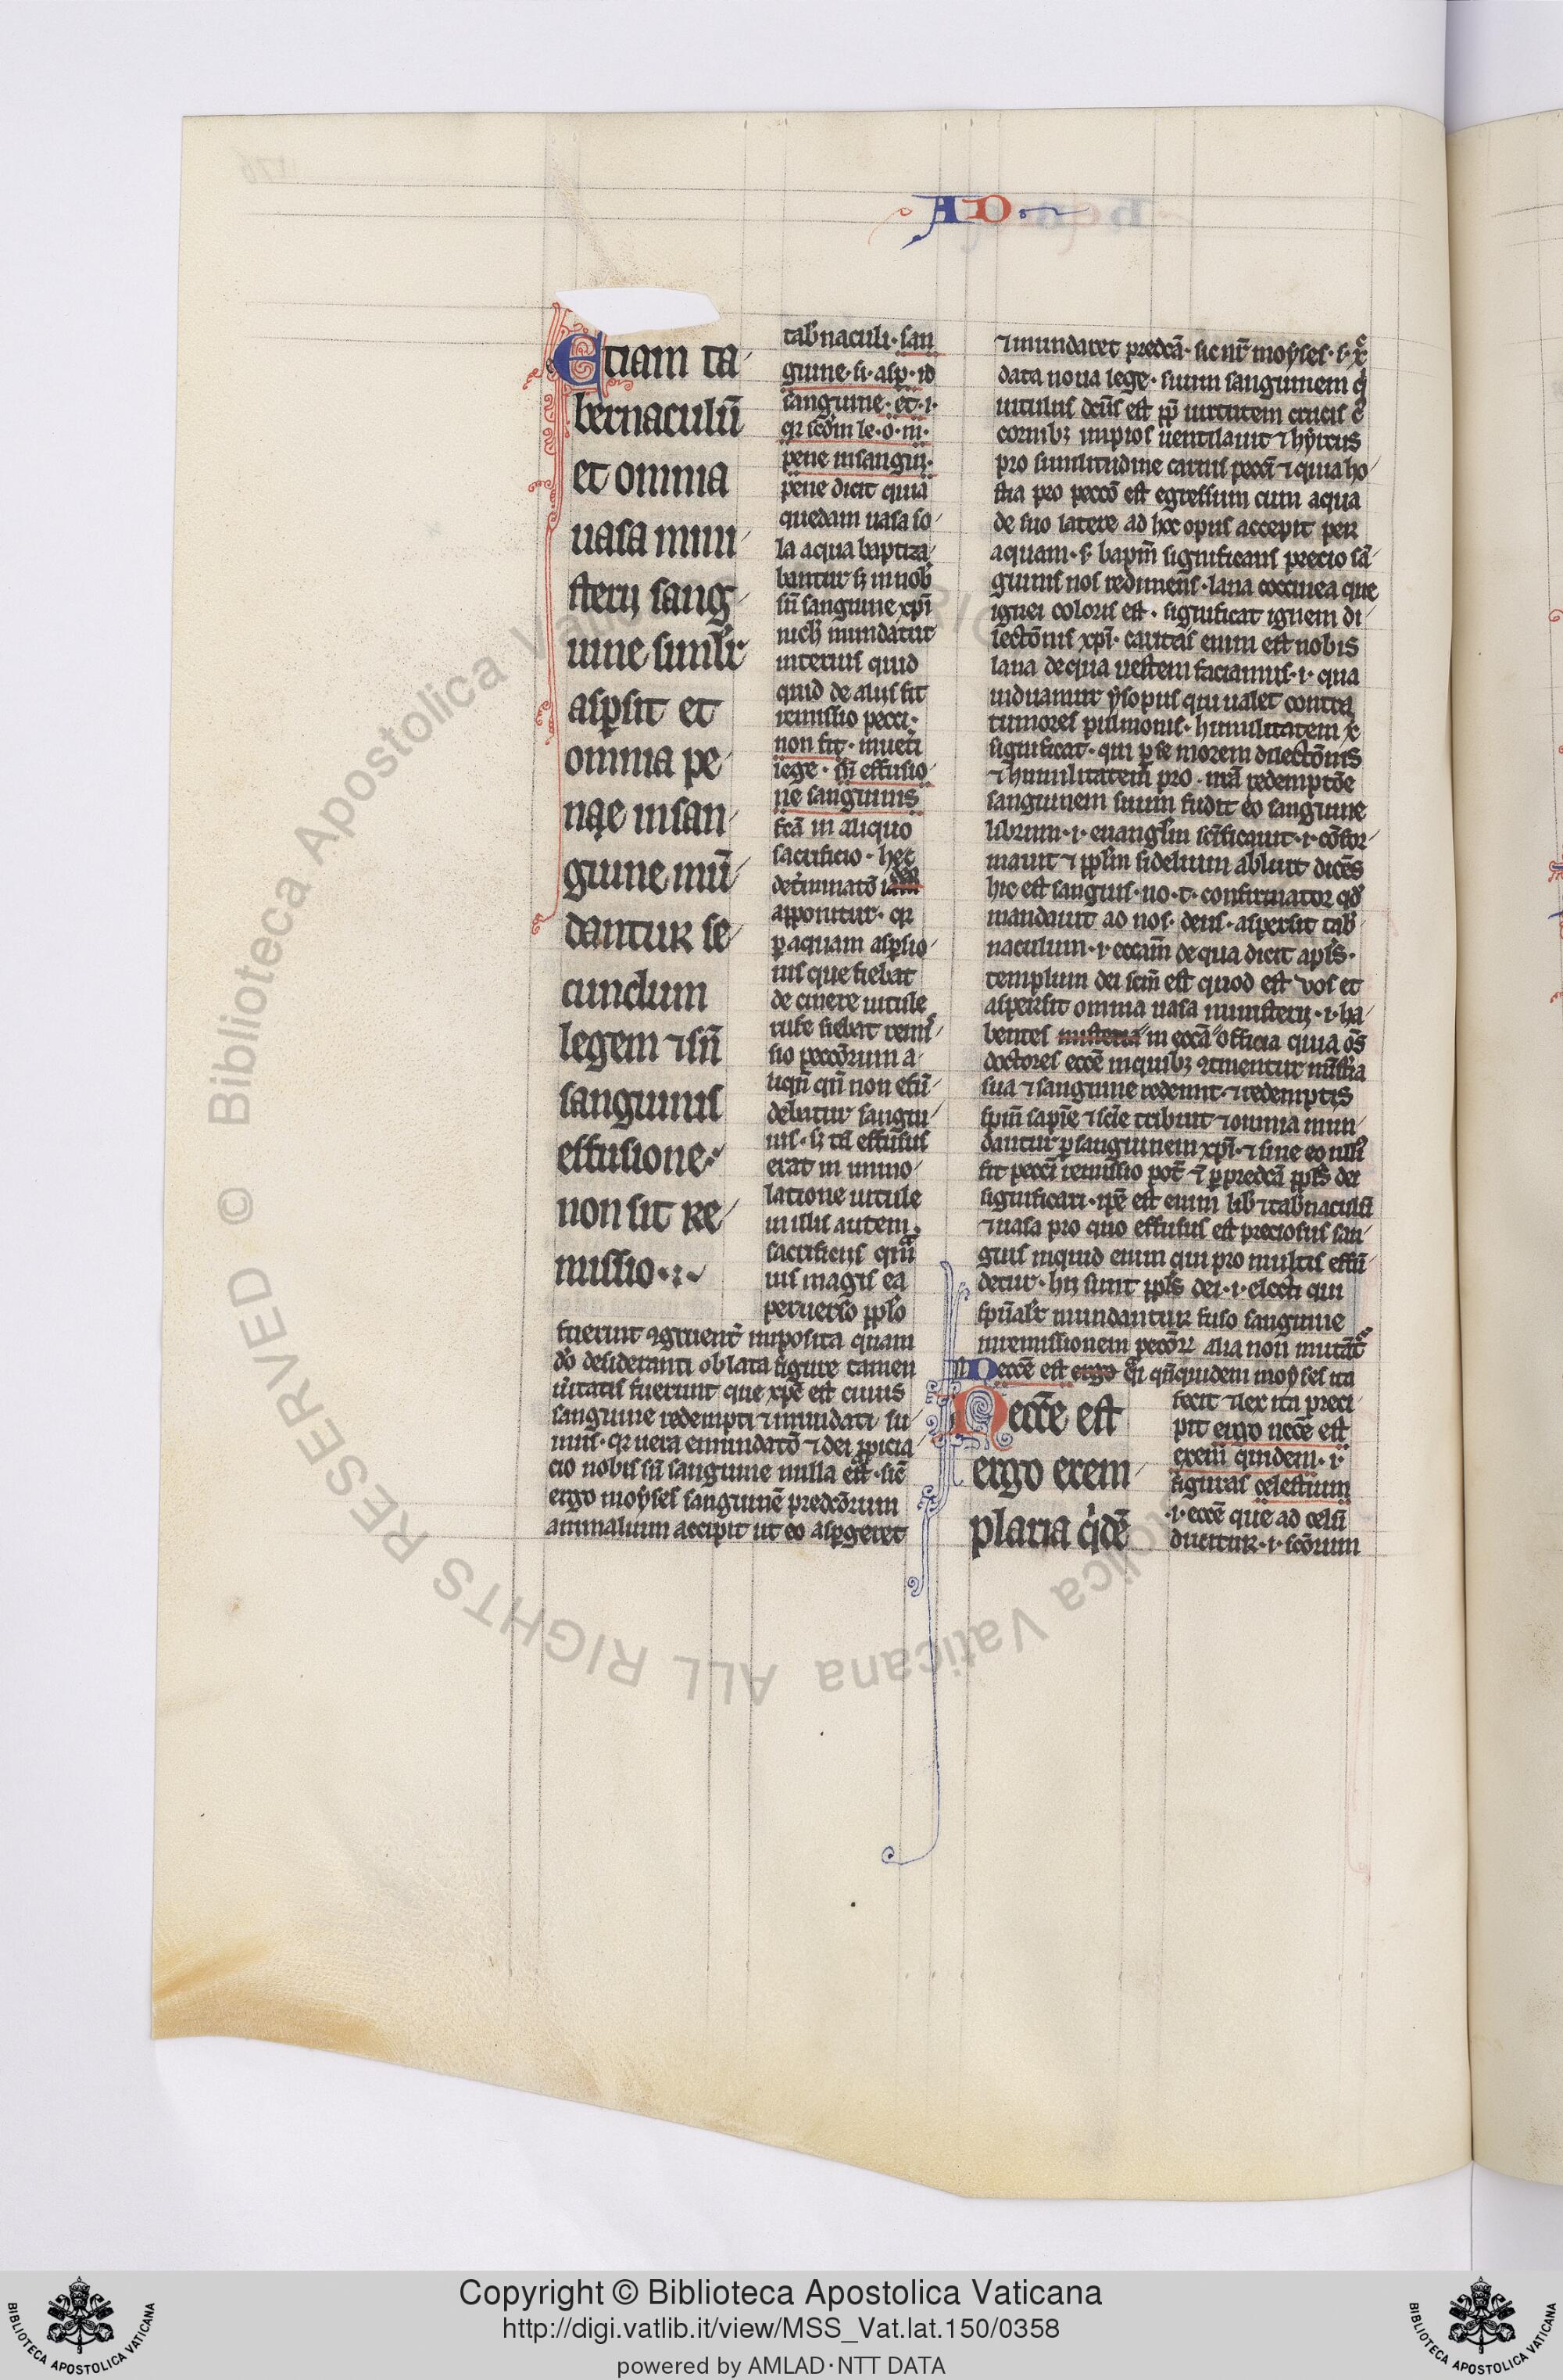 AD
Etiam ta
bernaculū
et omnia
uasa mini
sterij sang
uine simil'r
aspsit et
omnia pe
nqe in san
guine mū
dantur se
cundum
legem ⁊ sn̄
sanguinis
effusione
non fit re
missio
tab'naculi · san
guine · si · asp · id
sanguine · et · i ·
qr scdm le · o · m ·
pene in sangui ·
pene dicit quia
quedam uasa so
la aqua baptiza
bantur sȝ in nob
sn̄ sanguine xpi
nich' mundatur
interius quid
quid de aliis fit
remissio pecci ·
non fit · in uet'i
lege · sn̄ effusio
ne sanguinis
fcā in aliquo
sacrificio · hec
det'minatō ideo
apponitur · qr
p aquam aspsio
nis que fiebat
de cinere uitule
rufe fiebat remis
sio peccōrum a
liqn̄ qn̄ non effū
debatur sangui
nis · sȝ tn̄ effusus
erat in immo
latione uitule
in illis autem
sacrificijs qm̄
uis magis ea
peruerso pplo
fuerunt ꝯgruent' imposita quam
dō desideranti oblata figure tamen
u'itatis fuerunt que xpē est cuius
sanguine redempti ⁊ mundati su
mus · qr uera emundatō ⁊ dei ppicia
cio nobis sn̄ sanguine nulla est · sic
ergo moyses sanguinē predcōrum
animalium accipit ut eo aspgeret
⁊ mundaret predcā · sic nr̄ moyses · s · xr
data noua lege · suum sanguinem q'
uitulus dcūs est pp uirtutem crucis c̄
cornibȝ impios uentilauit ⁊ hyrcus
pro similitudine carnis pecci ⁊ quia ho
stia pro peccō est egressum cum aqua
de suo latere ad hoc opus accepit per
aquam · s · bapm̄ significans precio sā
guinis nos redimens · lana coccinea que
ignei coloris est · significat ignem di
lectōnis xpi · caritas enim est nobis
lana de qua uestem faciamus · i · qua
induamur ysopus qui ualet contra
tumores pulmonis · humilitatem x
significat · qui p se morem dilectōnis
⁊ humilitatem pro · nrā redemptōe
sanguinem suum fudit eo sanguine
librum · i · euangl'm scificauit · i · cōfir
mauit ⁊ ppl'm fidelium abluit dicēs
hic est sanguis · no · t · confirmator qd'
mandauit ad nos · deus · aspersit tab'
naculum · i · eccam̄ de qua dicit apls ·
templum dei scm̄ est quod est uos et
aspersit omnia uasa ministerij · i · ha
bentes misteria in eccā officia quia ōs
doctores eccē in quibȝ ꝯtinentur mist'ia
sua ⁊ sanguine redemit · ⁊ redemptis
spm̄ sapīe ⁊ scīe tribuit ⁊ omnia mun
dantur p sanguinem xpi · ⁊ sine eo nulli
fit pecci remissio pot' ⁊ p predcā ppls dei
significari · ipē est enim lib' ⁊ tab'naculū
⁊ uasa pro quo effusus est preciosus san
guis inquid enim qui pro multis effū
detur · hij sunt ppls dei · i · electi qui
spūalr mundantur fuso sanguine
in remissionem pecōrȝ alia non mutāt'
Necce est ergo qr qn̄quidem moyses ita
fecit ⁊ lex ita preci
pit ergo necce est
exem̄ quidem · i ·
figuras celestium
· i · eccē que ad celū
ducitur · i · scōrum
Necc̄e est
ergo exem
plaria q'dē
Copyright © Biblioteca Apostolica Vaticana
http://digi.vatlib.it/view/MSS_Vat.lat.150/0358
powered by AMLAD·NTT DATA